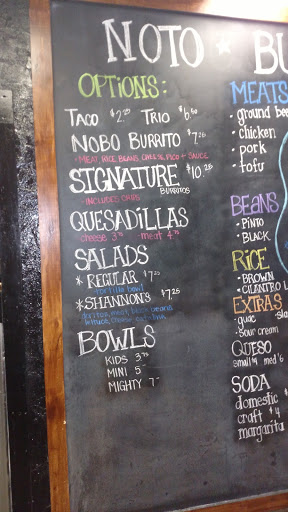 NOTO ★ BU
OPTIONS:
TACO $2.25 TRIO $6.50
NOBO BURRITO $7.25
• MEAT, RICE, BEANS, CHEESE, PICO + SAUCE
SIGNATURE $10.25
BURRITOS
• INCLUDES
QUESADILLAS
cheese 3.75 - meat 4.75
SALADS
* REGULAR $7.25
tortilla bowl
* SHANNON'S $7.25
tortilla, meat, black beans
lettuce, cheese
BOWLS
KIDS 3.75
MINI 5-
MIGHTY 7-
MEATS
• ground bee
• chicken
• pork
• tofu
BEANS
• PINTO
• BLACK
RICE
• BROWN
• CILENTRO L
EXTRAS
• guac
• sour cream
QUESO
small $4 med $6
SODA
domestic $
craft $4
margarita